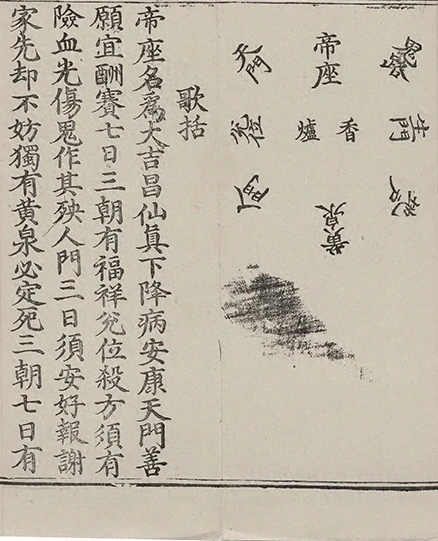 生門
帝座
香爐
黄泉
天門
兊位
人門
歌括
帝座名爲大吉昌仙眞下降病安康天門善
願宜酬賽七日三朝有福祥兊位殺方須有
險血光傷鬼作其殃人門三日須安好報謝
家先却不妨獨有黄泉必定死三朝七日有